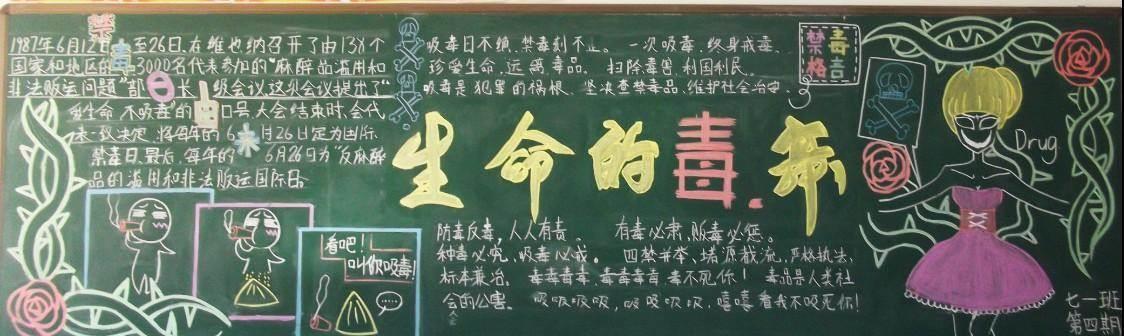 禁毒
1987年6月12日至26日,在维也纳召开了由138个
国家和地区的3000名代表参加的“麻醉品滥用和
非法贩运问题”部长级会议.这次会议提出了“
爱生命,不吸毒”的口号,大会结束时,会代
表一致决定,将每年的6月26日定为国际
禁毒日,最后,每年的6月26日为“反麻醉
品的滥用和非法贩运国际日。
吸毒日不绝,禁毒刻不止。 一次吸毒,终身戒毒。
珍爱生命,远离毒品。 扫除毒害,利国利民。
吸毒是犯罪的祸根。坚决查禁毒品,维护社会治安。
禁毒
格言
生命的毒
Drug
防毒反毒,人人有责。 有毒必肃,贩毒必惩。
种毒必究,吸毒必戒。 四禁并举、堵源截流,严格执法、
标本兼治。 毒毒毒毒,毒毒毒毒,毒不死你! 毒品是人类社
会的公害。 吸吸吸吸,吸吸吸吸,嘻嘻,看我不吸死你!
看吧!
叫你吸毒!
七一班
第四期